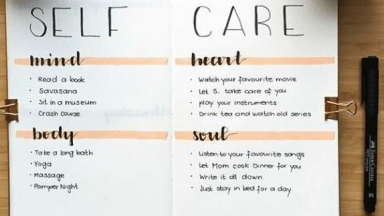 SELF CARE
mind
• Read a book
• Savasana
• Sit in a museum
• Crash Course
heart
• Watch your favourite movie
• Let S. take care of you
• play your instruments
• Drink tea and watch old series
body
• Take a long bath
• Yoga
• Massage
• Pamper Night
soul
• Listen to your favourite songs
• Let Mom cook Dinner for you
• Write it all down
• Just stay in bed for a day